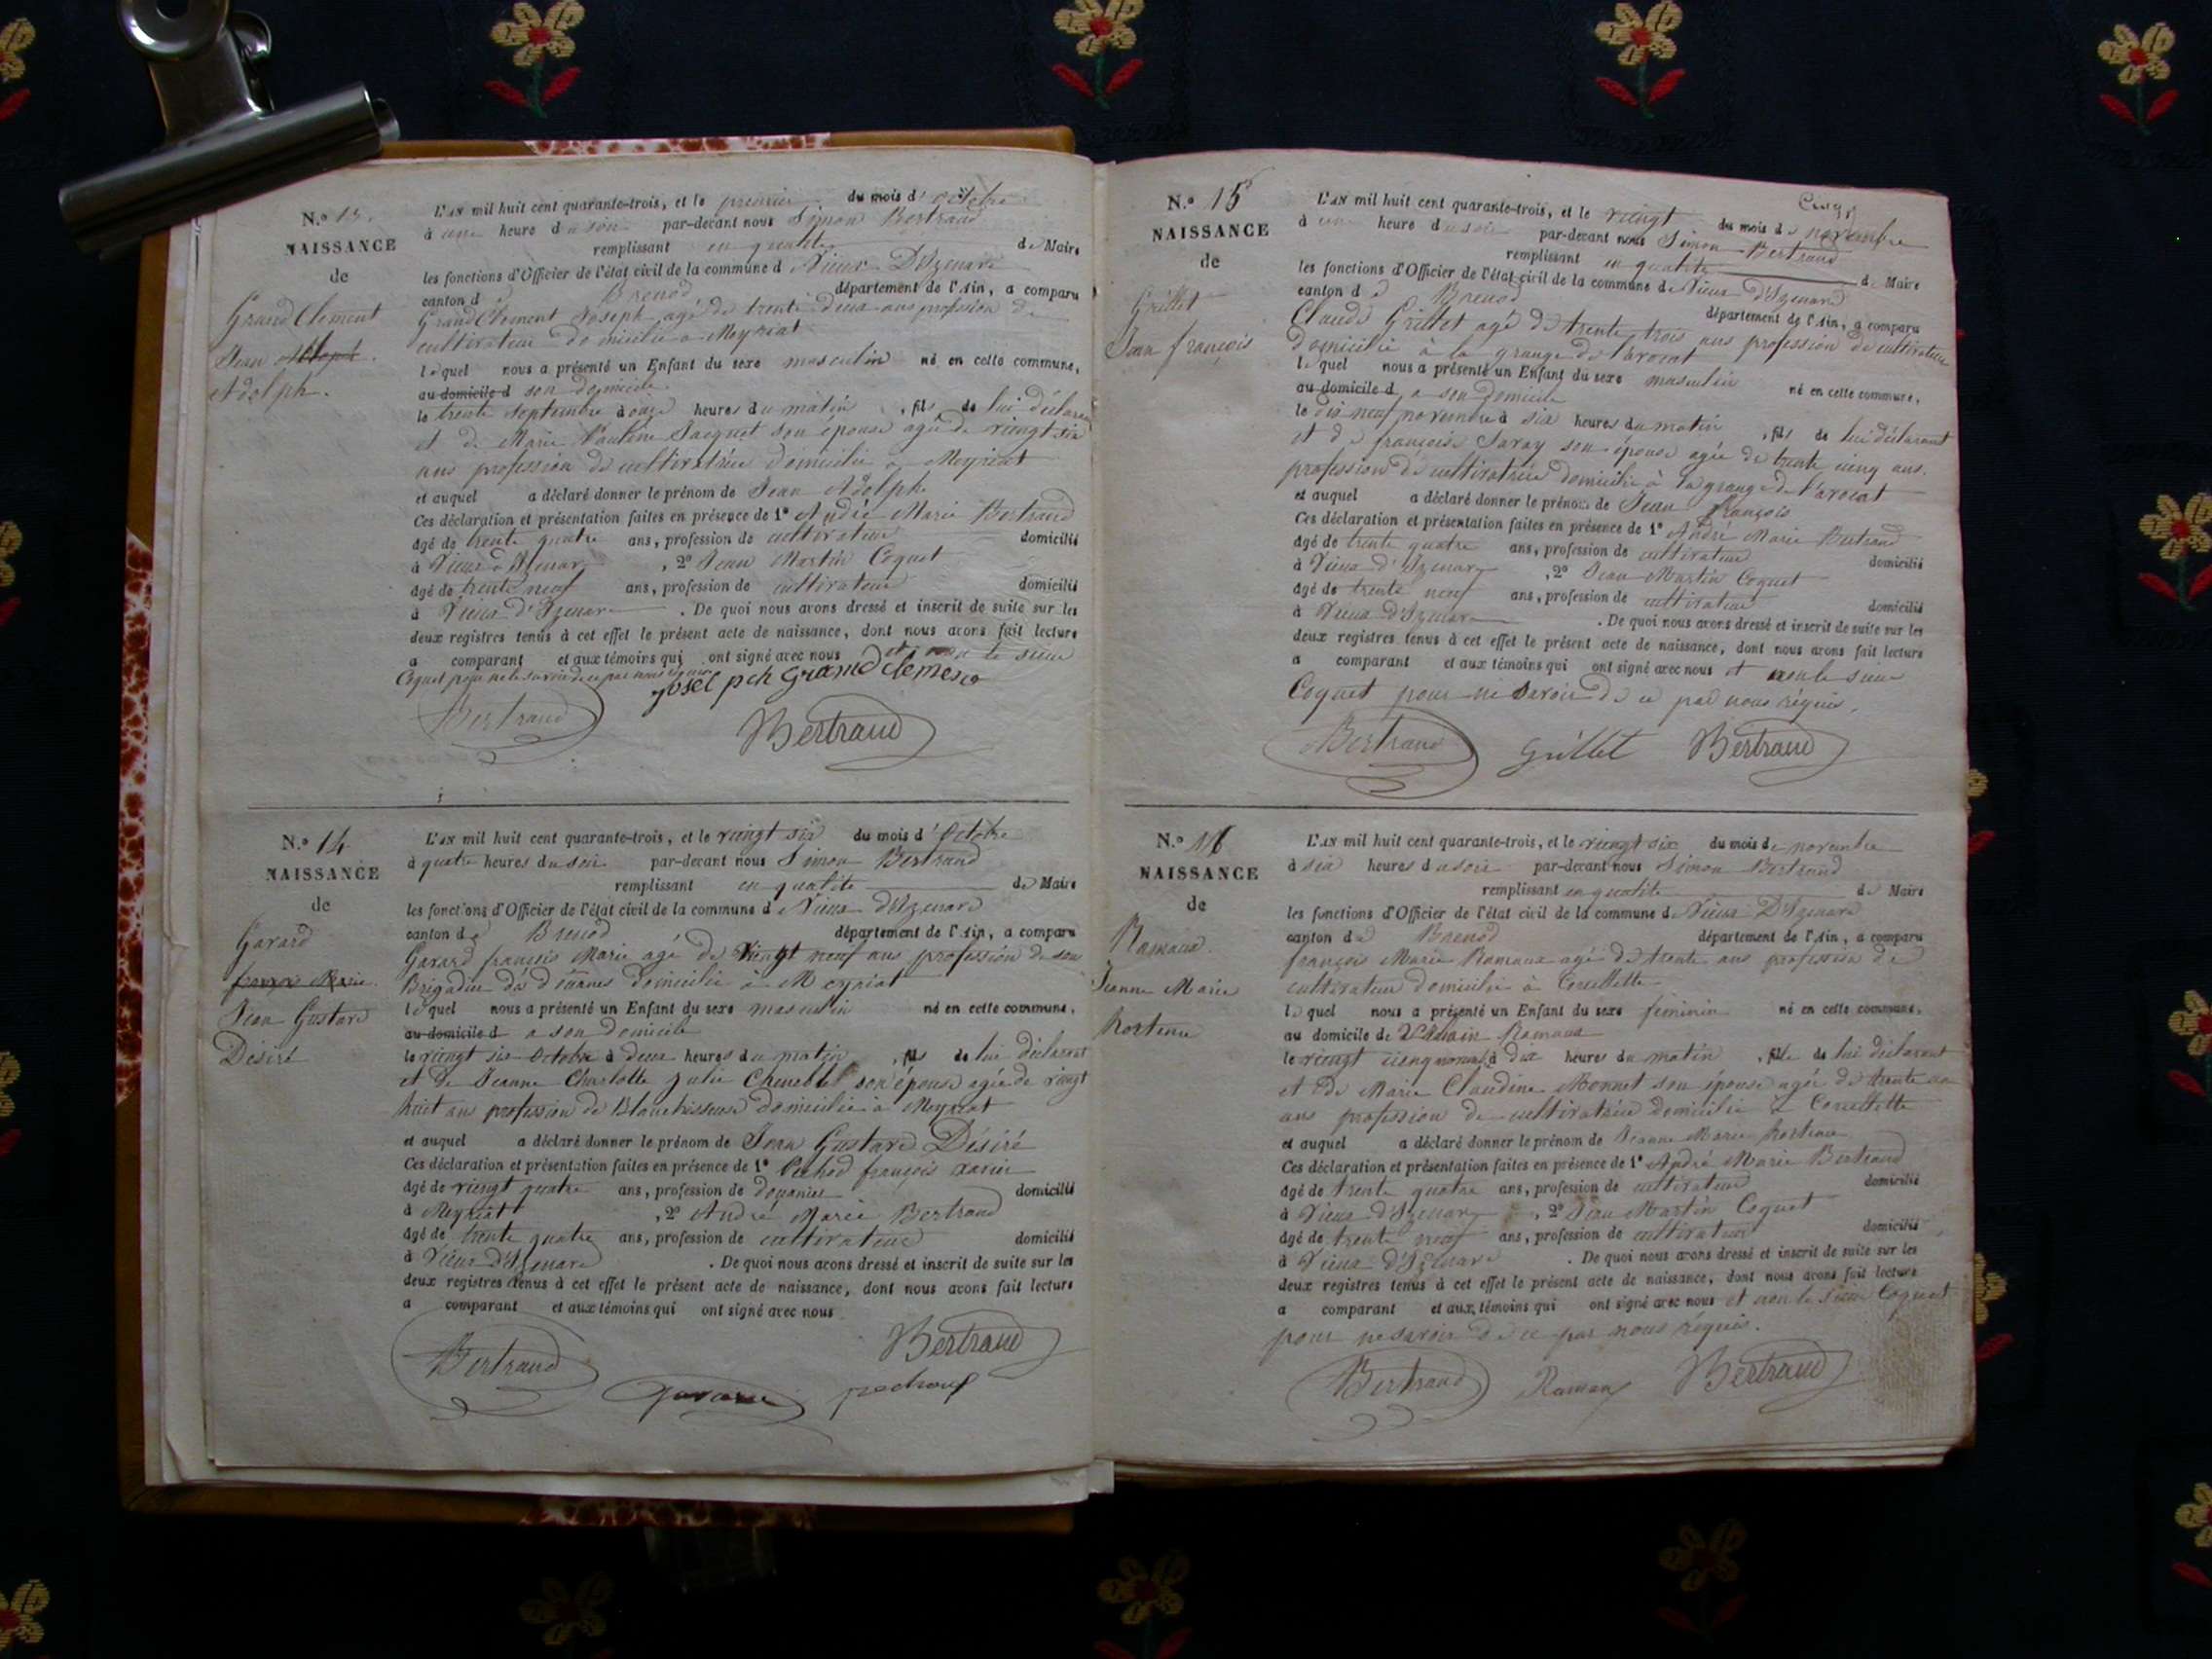 N.º 13.
NAISSANCE
de
Grand Clement
Jean
Adolph.
L'AN mil huit cent quarante-trois, et le premier du mois d'octobre
à une heure du soir par-devant nous Simon Bertrand
remplissant en qualité de Maire
les fonctions d'Officier de l'état civil de la commune d Vieux D'Izenave
canton de Brenod département de l'Ain, a comparu
Grand Clement Joseph agé de trente deux ans profession de
cultivateur domicilié a Meyriat
lequel nous a présenté un Enfant du sexe masculin né en cette commune,
au domicile d son domicile
le trente septembre à onze heures du matin, fils de lui déclarant
et de Marie Pauline Jacquet son épouse agée de vingt six
ans profession de cultivatrice domicilié a Meyriat
et auquel a déclaré donner le prénom de Jean Adolph
Ces déclaration et présentation faites en présence de 1º André Marie Bertrand
âgé de trente quatre ans, profession de cultivateur domicilié
à Vieux d'Izenave, 2º Jean Martin Coquet
âgé de trente neuf ans, profession de cultivateur domicilié
à Vieux d'Izenave. De quoi nous avons dressé et inscrit de suite sur les
deux registres tenus à cet effet le présent acte de naissance, dont nous avons fait lecture
a comparant et aux témoins qui ont signé avec nous et non le sieur
Coquet pour ne le savoir de ce par nous requis
Josepch Grand clement
Bertrand Bertrand
N.º 14
NAISSANCE
de
Gavard
françois Marie
Jean Gustave
Désiré
L'AN mil huit cent quarante-trois, et le vingt six du mois d'Octobre
à quatre heures du soir par-devant nous Simon Bertrand
remplissant en qualité de Maire
les fonctions d'Officier de l'état civil de la commune d Vieux d'Izenave
canton de Brenod département de l'Ain, a comparu
Gavard françois Marie agé de vingt neuf ans profession de sous
Brigadier des douannes domicilié à Meyriat
lequel nous a présenté un Enfant du sexe masculin né en cette commune,
au domicile d a son domicile
le vingt six Octobre à deux heures du matin, fils de lui déclarant
et de Jeanne Charlotte Julie son épouse agée de vingt
huit ans profession de Blanchisseuse domicilié a Meyriat
et auquel a déclaré donner le prénom de Jean Gustave Désiré
Ces déclaration et présentation faites en présence de 1º françois xavier
âgé de vingt quatre ans, profession de douanier domicilié
à Meyriat, 2º André Marie Bertrand
âgé de trente quatre ans, profession de cultivateur domicilié
à Vieux d'Izenave. De quoi nous avons dressé et inscrit de suite sur les
deux registres tenus à cet effet le présent acte de naissance, dont nous avons fait lecture
a comparant et aux témoins qui ont signé avec nous
Bertrand
Bertrand
Gavard
N.º 15
NAISSANCE
de
Grillet
Jean françois
L'AN mil huit cent quarante-trois, et le vingt du mois de novembre
à une heure du soir par-devant nous Simon Bertrand
remplissant en qualité de Maire
les fonctions d'Officier de l'état civil de la commune de Vieux d'Izenave
canton de Brenod département de l'Ain, a comparu
Claude Grillet agé de trente trois ans profession de cultivateur
domicilié à la grange de l'avocat
lequel nous a présenté un Enfant du sexe masculin né en cette commune,
au domicile d a son domicile
le dix neuf novembre à six heures du matin, fils de lui déclarant
et de françoise Savay son épouse agée de trente cinq ans
profession de cultivatrice domicilié à la grange de l'avocat
et auquel a déclaré donner le prénom de Jean François
Ces déclaration et présentation faites en présence de 1º André Marie Bertrand
âgé de trente quatre ans, profession de cultivateur domicilié
à Vieux d'Izenave, 2º Jean Martin Coquet
âgé de trente neuf ans, profession de cultivateur domicilié
à Vieux d'Izenave. De quoi nous avons dressé et inscrit de suite sur les
deux registres tenus à cet effet le présent acte de naissance, dont nous avons fait lecture
a comparant et aux témoins qui ont signé avec nous et non le sieur
Coquet pour ne savoir de ce par nous requis.
Bertrand Grillet Bertrand
N.º 16
NAISSANCE
de
Ramaux
Jeanne Marie
hortense
L'AN mil huit cent quarante-trois, et le vingt six du mois de novembre
à six heures du soir par-devant nous Simon Bertrand
remplissant en qualité de Maire
les fonctions d'Officier de l'état civil de la commune de Vieux D'Izenave
canton de Brenod département de l'Ain, a comparu
françois Marie Ramaux agé de trente ans profession de
cultivateur domicilié à
lequel nous a présenté un Enfant du sexe féminin né en cette commune,
au domicile de Ramaux
le vingt cinq à dix heures du matin, fille de lui déclarant
et de Marie Claudine Monnet son épouse agée de trente un
ans profession de cultivatrice domicilié à
et auquel a déclaré donner le prénom de Jeanne Marie hortense
Ces déclaration et présentation faites en présence de 1º André Marie Bertrand
âgé de trente quatre ans, profession de cultivateur domicilié
à Vieux d'Izenave, 2º Jean Martin Coquet
âgé de trente neuf ans, profession de cultivateur domicilié
à Vieux d'Izenave. De quoi nous avons dressé et inscrit de suite sur les
deux registres tenus à cet effet le présent acte de naissance, dont nous avons fait lecture
a comparant et aux témoins qui ont signé avec nous et non le sieur Coquet
pour ne savoir de ce par nous requis.
Bertrand Ramaux Bertrand